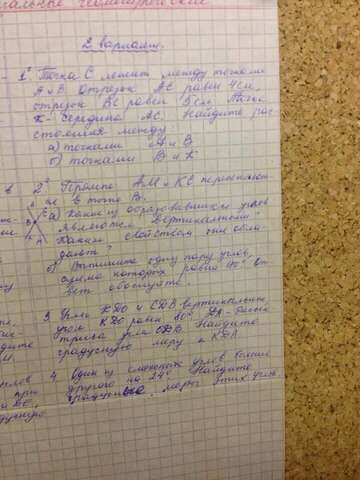 2 вариант.
1° Точка С лежит между точками
А и В. Отрезок АС равен 4см,
отрезок ВС равен 5см. Точка
К- середина АС. Найдите рас
стояния между
а) точками А и В
б) точками В и К
2° Прямые АМ и КС пересекают-
ся в точке В.
а) какие из образовавшихся углов
являются вертикальными?
Каким свойством они обла
дают?
б) Выпишите одну пару углов,
сумма которых равна От
вет обоснуйте.
3 Углы КДО и СДВ вертикальные
угол КДО равен 80° ДА- бисек
триса угла СДВ. Найдите
градусную меру КДА
4 Один из смежных углов больше
другого на 24° Найдите
градусные меры этих углов